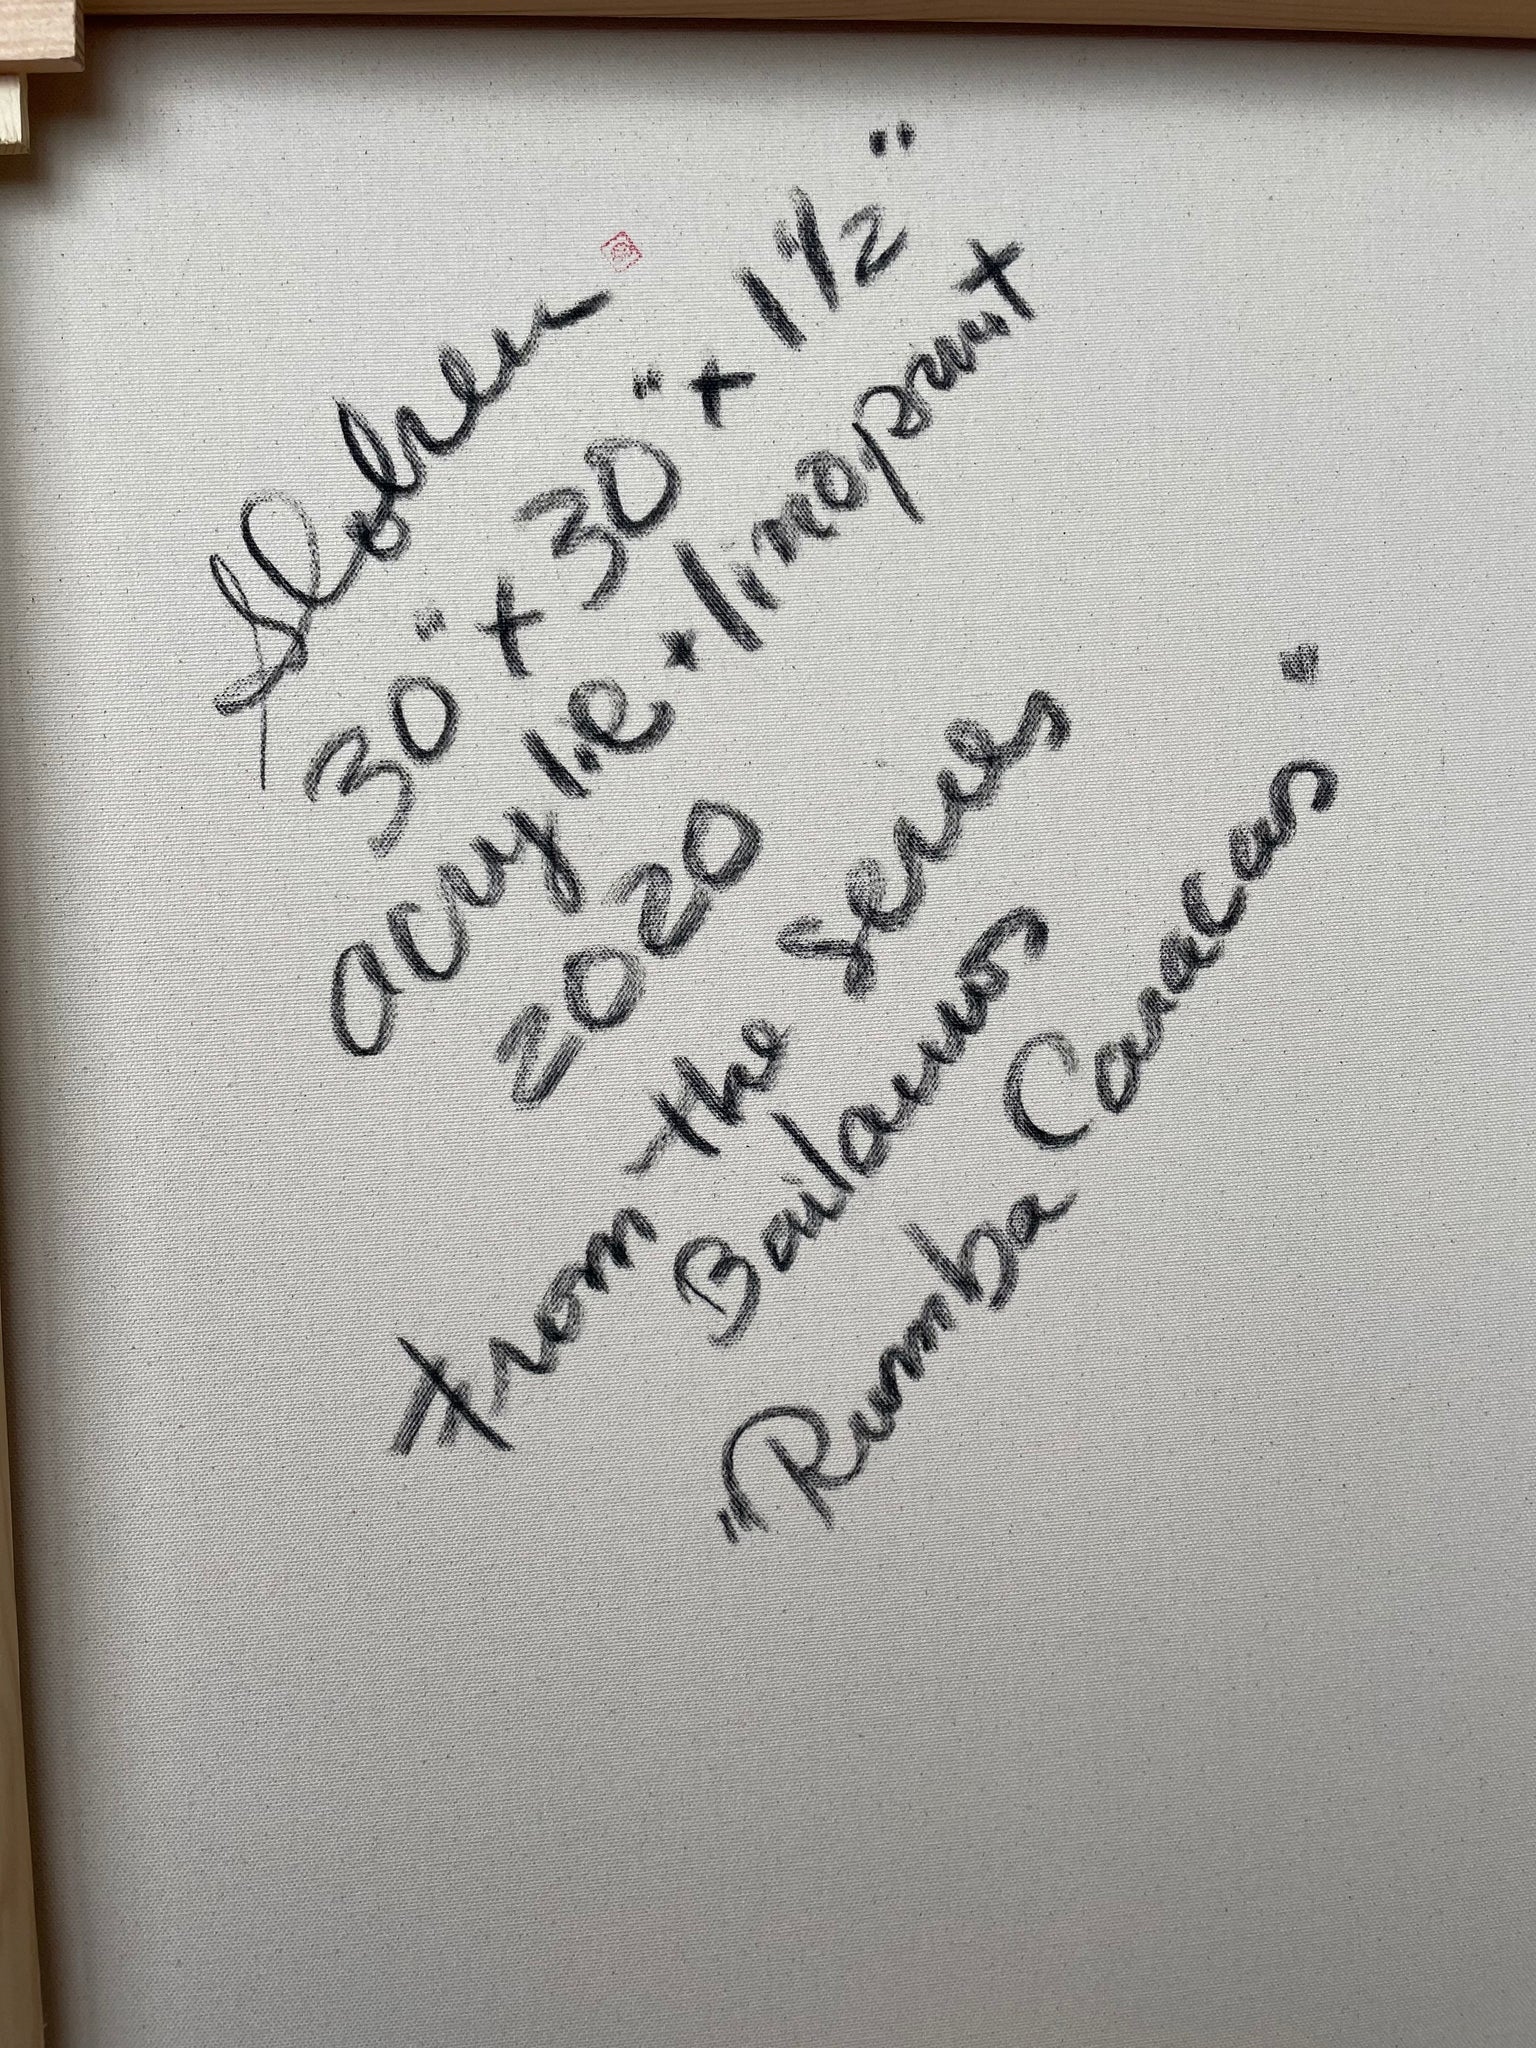 30" x 30" x 1 1/2"
acrylic + linoprint
2020
from the series
Bailamos
"Rumba Caracas"